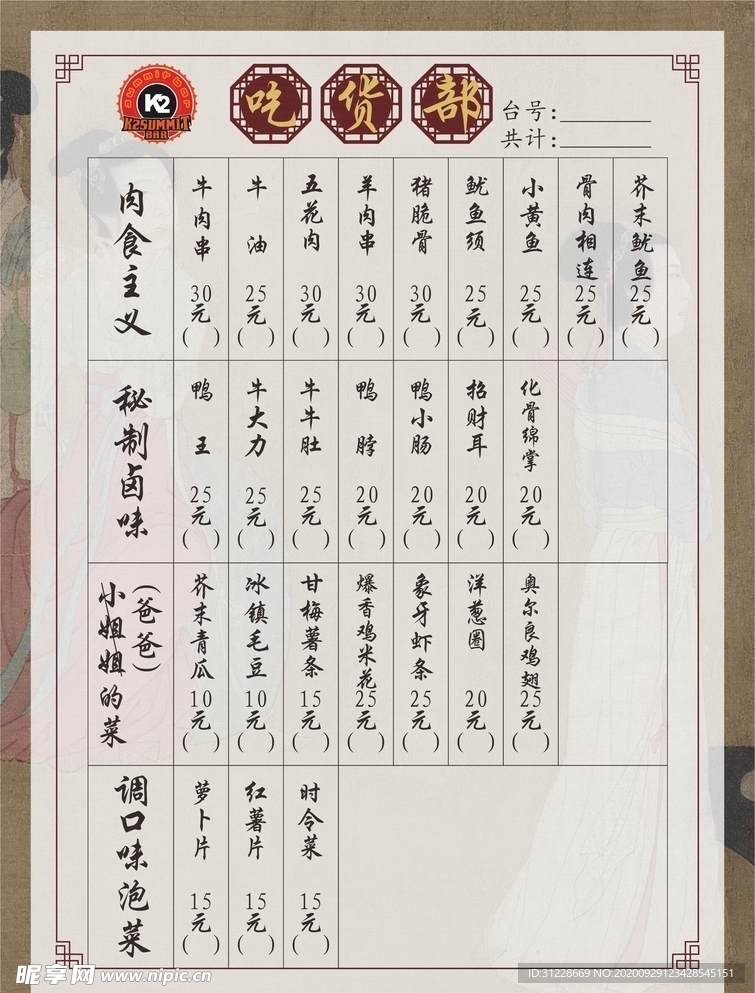 summit bar
K2
K2SUMMIT
BAR
吃货部
台号:
共计:
肉食主义
牛肉串 30元 ( )
牛油 25元 ( )
五花肉 30元 ( )
羊肉串 30元 ( )
猪脆骨 30元 ( )
鱿鱼须 25元 ( )
小黄鱼 25元 ( )
骨肉相连 25元 ( )
芥末鱿鱼 25元 ( )
秘制卤味
鸭王 25元 ( )
牛大力 25元 ( )
牛牛肚 25元 ( )
鸭脖 20元 ( )
鸭小肠 20元 ( )
招财耳 20元 ( )
化骨绵掌 20元 ( )
(爸爸)
小姐姐的菜
芥末青瓜 10元 ( )
冰镇毛豆 10元 ( )
甘梅薯条 15元 ( )
爆香鸡米花 25元 ( )
象牙虾条 25元 ( )
洋葱圈 20元 ( )
奥尔良鸡翅 25元 ( )
调口味泡菜
萝卜片 15元 ( )
红薯片 15元 ( )
时令菜 15元 ( )
昵享网 www.nipic.cn
ID:31228669 NO:20200929123428545151